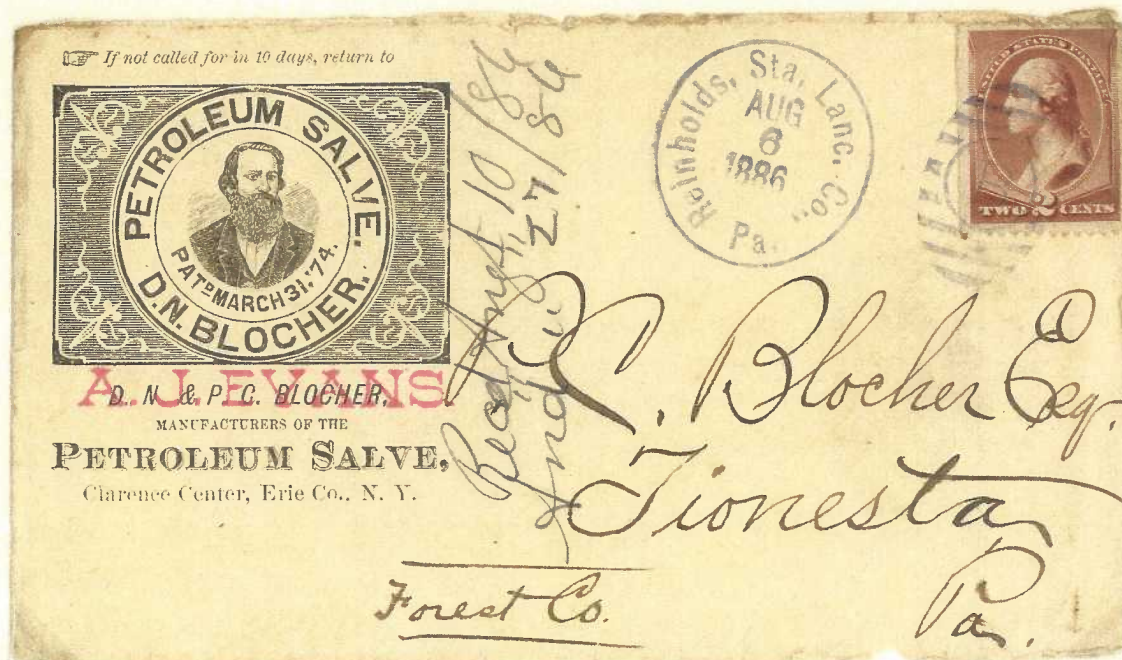 If not called for in 10 days, return to
PETROLEUM SALVE.
PATD MARCH 31, '74.
D.N. BLOCHER.
A. J. EVANS
D. N. & P. C. BLOCHER,
MANUFACTURERS OF THE
PETROLEUM SALVE,
Clarence Center, Erie Co., N. Y.
10/86
27/86
Reinholds, Sta, Lanc. Co.,
AUG
6
1886
Pa.
UNITED STATES POSTAGE
TWO 2 CENTS
C. Blocher Esq.
Tionesta
Forest Co.
Pa.